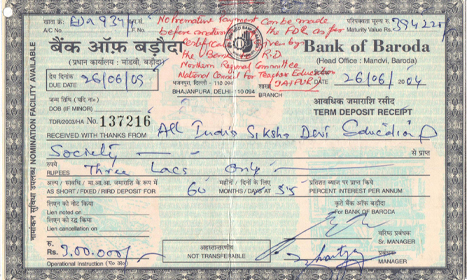 खाता क्रं.
A/C No.
No Premature Payment can be made
before Maturity
the FDR as per
Certificate given by
the
Northern Regional Committee
National Council for Teacher Education
JAIPUR
Maturity Value Rs.
बैंक ऑफ़ बड़ौदा
(प्रधान कार्यालय : मांडवी, बड़ौदा)
Bank of Baroda
(Head Office : Mandvi, Baroda)
देय दिनांक
DUE DATE 26/06/09
BHAJANPURA, DELHI-110 094
शाखा
BRANCH
DATE 26/06/2004
जन्म तिथि (यदि नाबालिग)
DOB (IF MINOR)
आवधिक जमाराशि रसीद
TERM DEPOSIT RECEIPT
TDR/2003/HA No. 137216
RECEIVED WITH THANKS FROM All India Siksha Devi Educational
Society से प्राप्त
रुपये
RUPEES Three Lacs Only
AS SHORT / FIXED / RIRD DEPOSIT FOR 60 MONTHS / DAYS AT
प्रतिशत ब्याज पर प्राप्त किये
PERCENT INTEREST PER ANNUM
लियन को नोट किया
Lien noted on
लियन को रद्द किया
Lien cancellation on
कृते बैंक ऑफ़ बड़ौदा
For BANK OF BARODA
वरिष्ठ प्रबंधक
Sr. MANAGER
रु.
Rs. 3,00,000/-
अहस्तांतरणीय
NOT TRANSFERABLE
प्रबंधक
MANAGER
Operational instruction
नामांकन सुविधा उपलब्ध NOMINATION FACILITY AVAILABLE